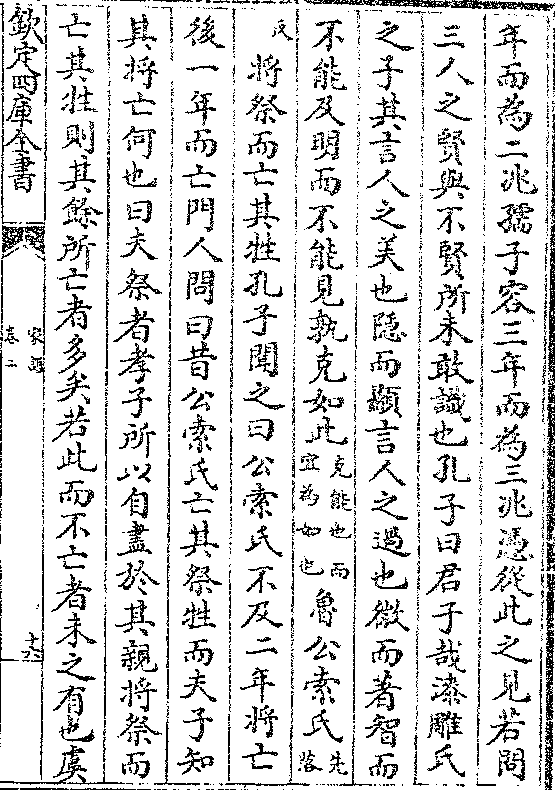 年而為二兆孺子容三年而為三兆憑從此之見若問
三人之賢與不賢所未敢識也孔子曰君子哉漆雕氏
之子其言人之美也隱而顯言人之過也微而著智而
不能及明而不能見孰克如此克能也而宜為如也魯公索氏先落
反將祭而亡其牲孔子聞之曰公索氏不及二年將亡
後一年而亡門人問曰昔公索氏亡其祭牲而夫子知
其將亡何也曰夫祭者孝子所以自盡於其親將祭而
亡其牲則其餘所亡者多矣若此而不亡者未之有也虞
欽定四庫全書
家語
卷二
十六